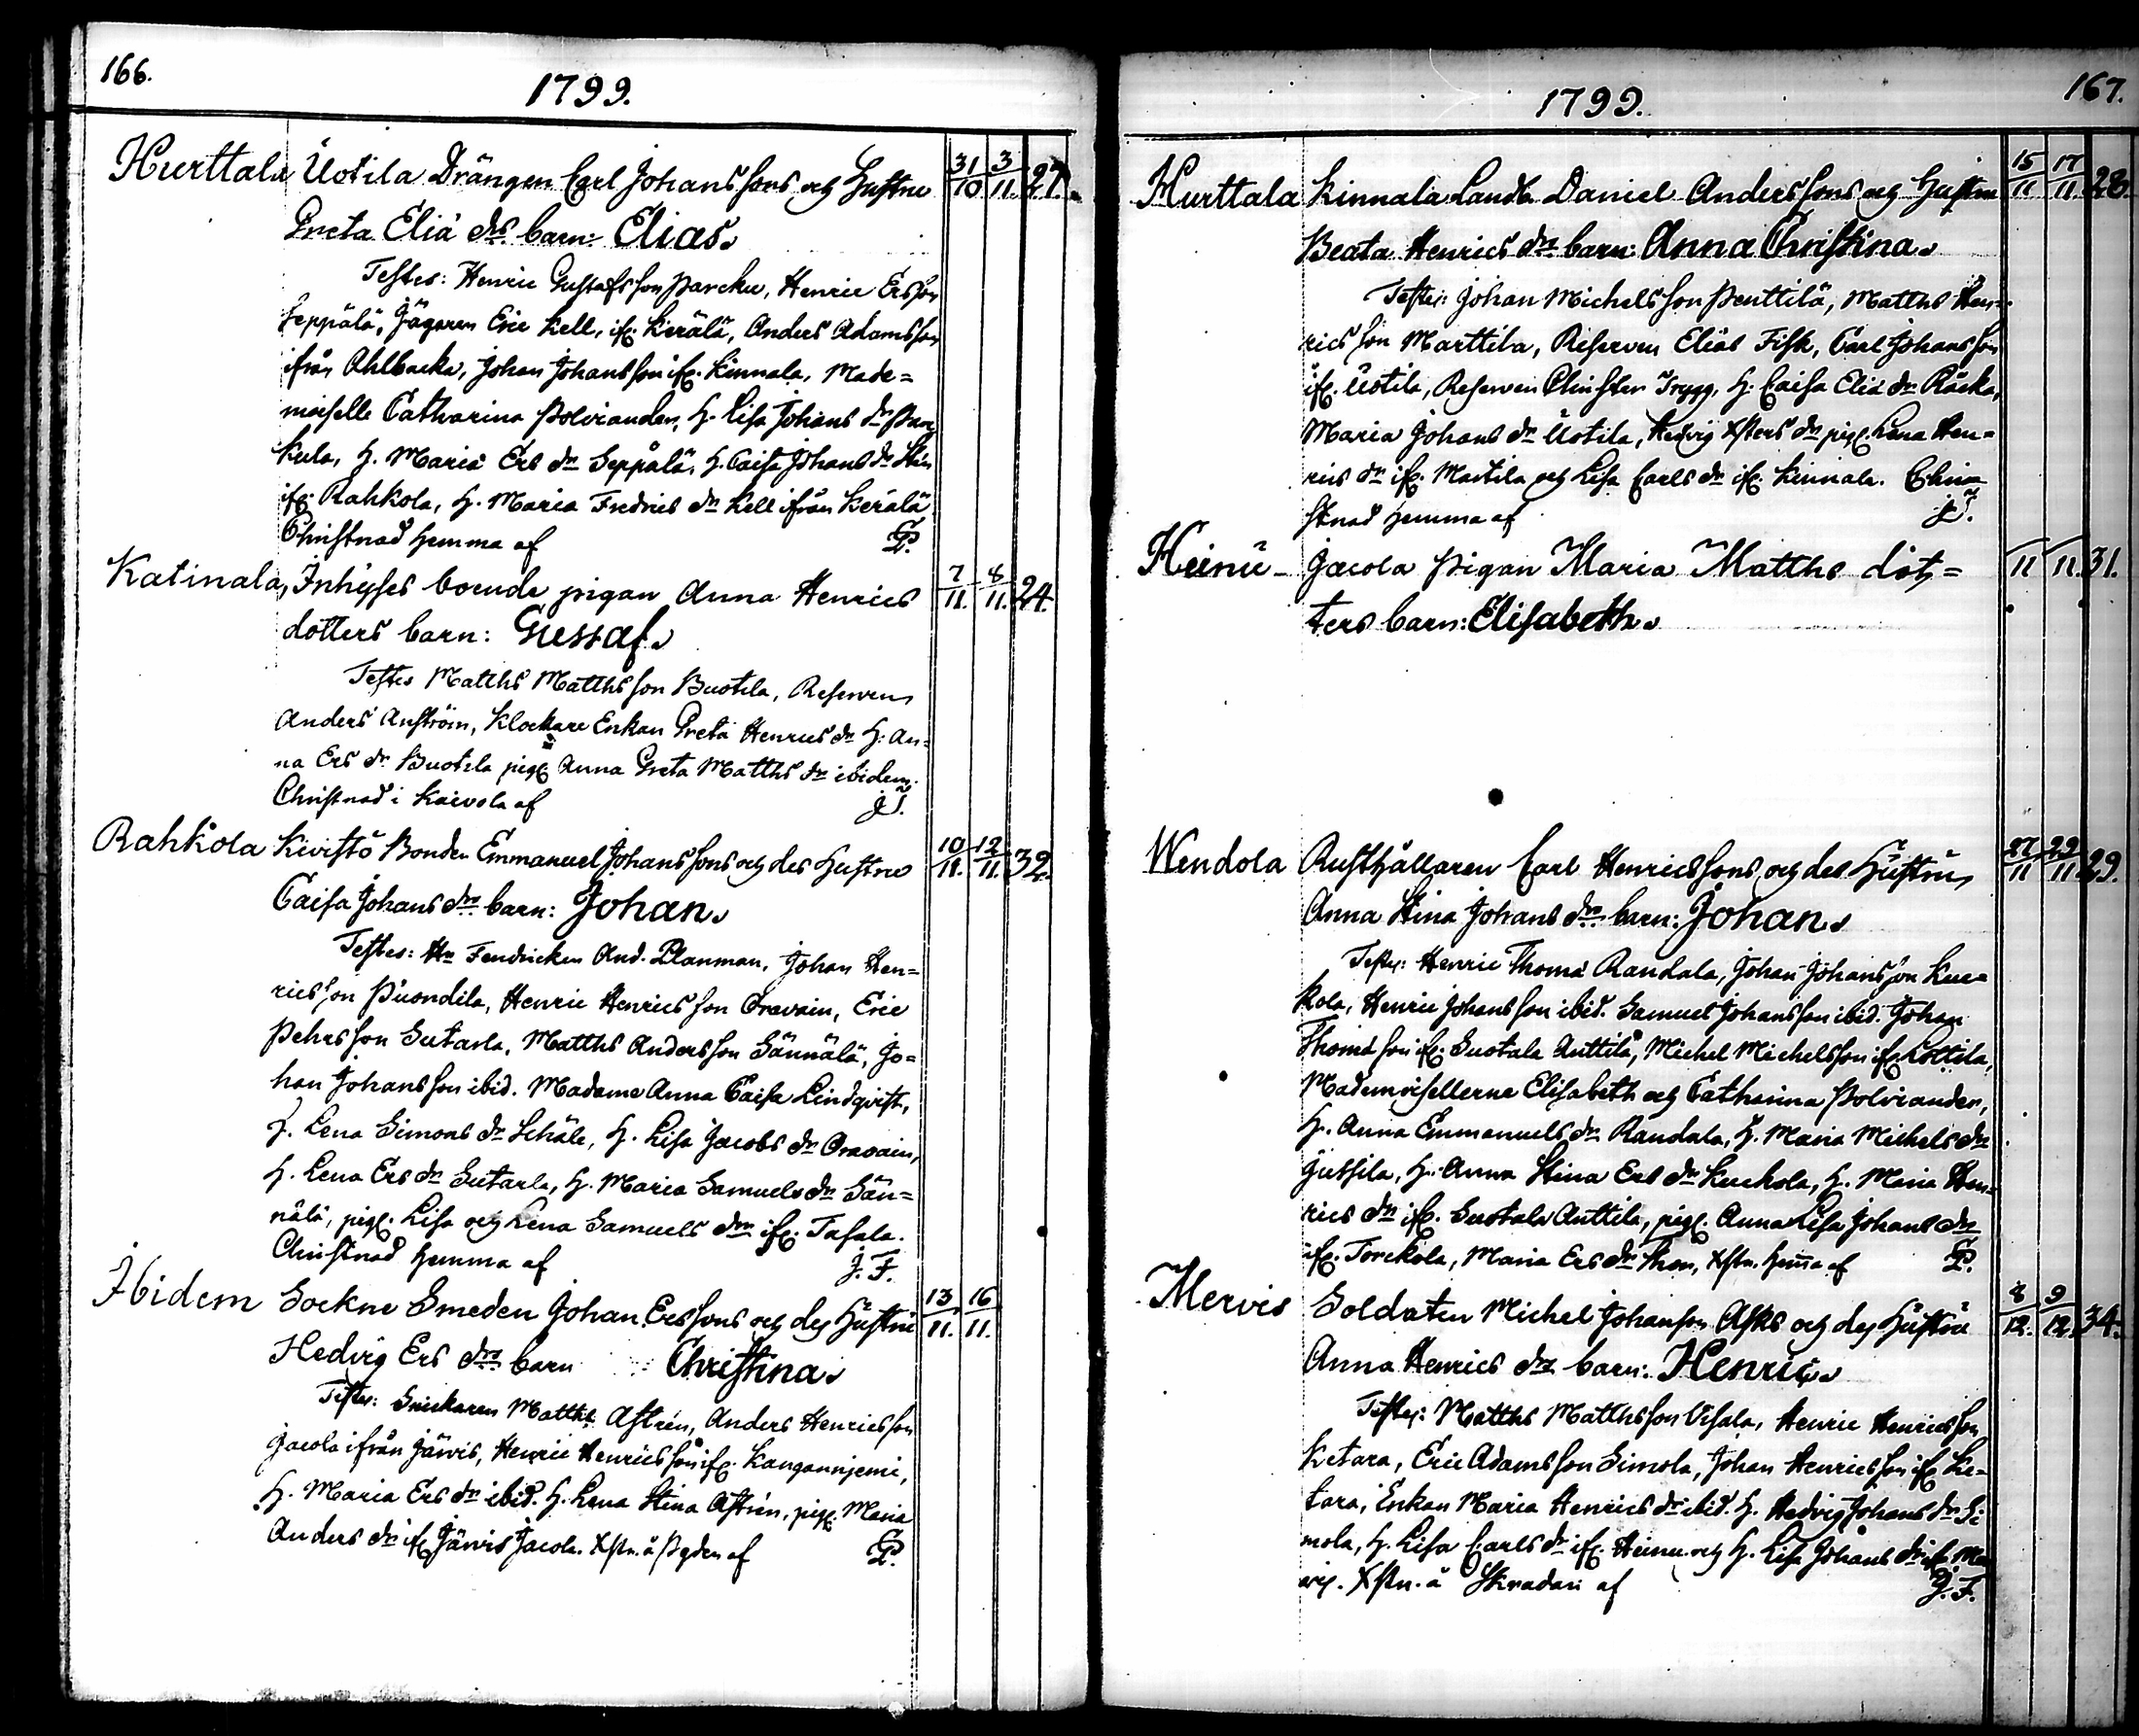 166.
1799.
Hurttala Uotila Drängen Carl Johans sons och Hustru 31/10. 3/11. 27.
Greta Eliä drs barn: Elias.
Testes: Henric Gustafs son Parcku, Henric Ers son
Seppälä, Jägaren Eric Kell, ifr. Kerälä, Anders Adams son
ifrån Ahlbacka, Johan Johans son ifr. Kinnala, Made=
moiselle Catharina Polviander, H. Lisa Johans dr Par
kula, H. Maria Ers dr Seppälä, H. Caisa Johans dr
ifr. Rahkola, H. Maria Fredrics dr Kell ifrån Kerälä
Christnad hemma af
Katinala, Inhyses boende pigan Anna Henrics 7/11. 8/11. 24.
dotters barn: Gustaf.
Testes Matths Matths son Buotila, Reserven
Anders Anström, Klockare Enkan Greta Henrics dr H. An=
na Ers dr Buotila pig. Anna Greta Matths dr ibidem.
Christnad i Kaivola af J.F.
Rahkola Kivistö Bonden Emmanuel Johans sons och des Hustru 10/11. 12/11. 32.
Caisa Johans drs barn: Johan.
Testes: Hr Fendricken And. Planman, Johan Hen=
rics son Puondila, Henric Henrics son Oravain, Eric
Pehrs son Sutarla, Matths Anders son Sännälä, Jo=
han Johans son ibid. Madame Anna Caisa Lindqvist,
H. Lena Simons dr Schäle, H. Lisa Jacobs dr Oravain,
H. Lena Ers dr Sutarla, H. Maria Samuels dr Sän=
nälä, pig. Lisa och Lena Samuels drr ifr. Tafala.
Christnad hemma af J.F.
Ibidem Sockne Smeden Johan Ers sons och des Hustru 13/11. 16/11.
Hedvig Ers drs barn Christina.
Testes: Snickaren Matths Astrén, Anders Henrics son
Jacola ifrån Järvis, Henric Henrics son ifr. Kangannjemi,
H. Maria Ers dr ibid. H. Lena Stina Astrén, pig. Maria
Anders dr ifr Järvis Jacola. Xstn. å Bÿden af
167.
1799.
Hurttala Kinnala Landb. Daniel Anders sons och Hustru 15/11 17/11. 28.
Beata Henrics drs barn: Anna Christina.
Testes: Johan Michels son Penttilä, Matths Hen=
rics son Marttila, Reserven Elias Fisk, Carl Johans son
ifr. Uotila, Reserven Christer Trygg, H. Caisa Eliä dr Räcka,
Maria Johans dr Uotila, Hedvig Xsters dr pig. Lena Hen=
rics dr ifr. Martila och Lisa Carls dr ifr. Kinnala. Chri=
stnad hemma af J.F.
Heinu- Jacola Pigan Maria Matths döt= 11 11. 31.
ters barn: Elisabeth.
Wendola Rusthållaren Carl Henrics sons och des Hustru 27/11 29/11 29.
Anna Stina Johans drs barn: Johan.
Testes: Henric Thomä Randala, Johan Johans son Kur=
kola, Henric Johans son ibid. Samuel Johans son ibid. Johan
Thomä son ifr. Suotala Anttila, Michel Michels son ifr. Lottila,
Mademoisellerne Elisabeth och Catharina Polviander,
H. Anna Emmanuels dr Randala, H. Maria Michels dr
Jussila, H. Anna Stina Ers dr Kurkola, H. Maria Hen=
rics dr ifr. Suotala Anttila, pig. Anna Lisa Johans dr
ifr. Torckola, Maria Ers dr Xstn. hemma af
Mervis Soldaten Michel Johanson Asks och des Hustru 8/12. 9/12. 34.
Anna Henrics drs barn: Henric.
Testes: Matths Matths son Uisala, Henric Henrics son
Ketara, Eric Adams son Simola, Johan Henrics son ifr Ke=
tara, Enkan Maria Henrics dr ibid. H. Hedvig Johans dr Si
mola, H. Lisa Carls dr ifr. Heinu och H. Lisa Johans dr ifr. Mer
vis. Xstn. å Skradari af J.F.